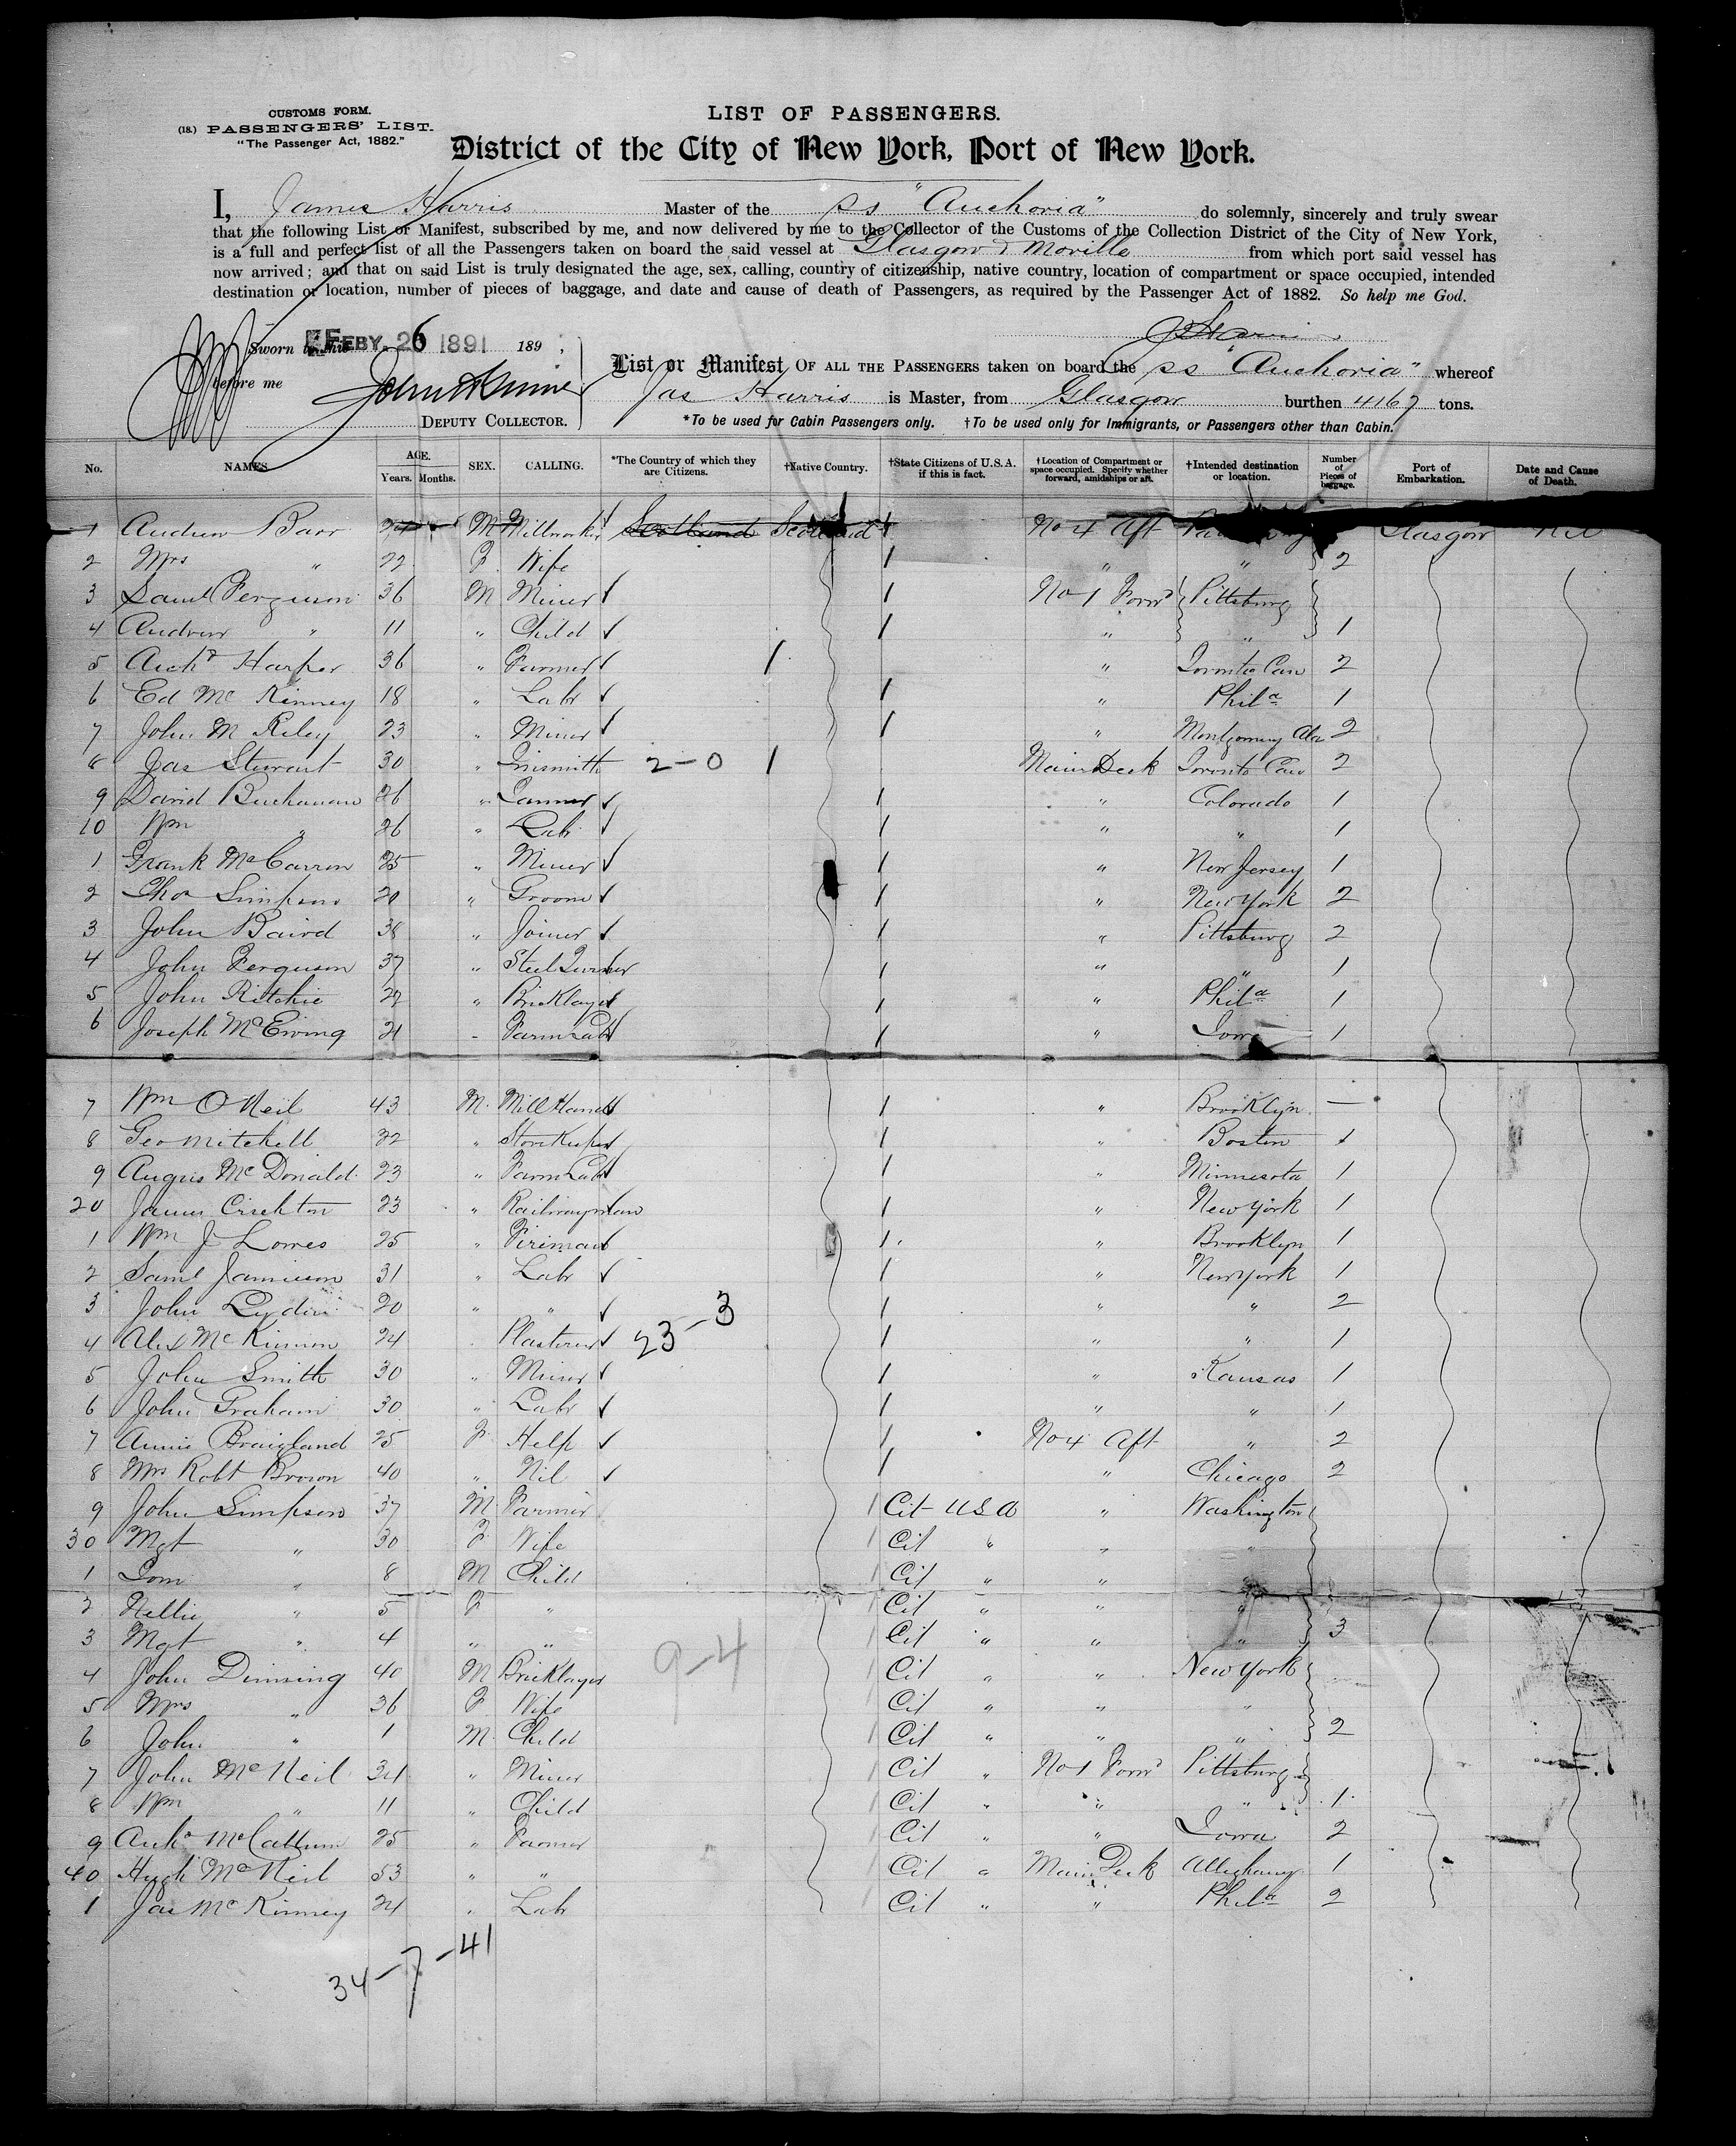 CUSTOMS FORM.
(18.) PASSENGERS' LIST.
"The Passenger Act, 1882."
LIST OF PASSENGERS.
District of the City of New York, Port of New York.
I, James Harris Master of the ss "Anchoria" do solemnly, sincerely and truly swear
that the following List or Manifest, subscribed by me, and now delivered by me to the Collector of the Customs of the Collection District of the City of New York,
is a full and perfect list of all the Passengers taken on board the said vessel at Glasgow & Moville from which port said vessel has
now arrived; and that on said List is truly designated the age, sex, calling, country of citizenship, native country, location of compartment or space occupied, intended
destination or location, number of pieces of baggage, and date and cause of death of Passengers, as required by the Passenger Act of 1882. So help me God.
Js Harris
Sworn to this FEBY. 26 1891 189 ,
before me
DEPUTY COLLECTOR.
List or Manifest OF ALL THE PASSENGERS taken on board the ss "Anchoria" whereof
Jas Harris is Master, from Glasgow burthen 4167 tons.
*To be used for Cabin Passengers only. †To be used only for Immigrants, or Passengers other than Cabin.
No. NAMES. AGE. Years. Months. SEX. CALLING. *The Country of which they are Citizens. †Native Country. †State Citizens of U.S.A. if this is fact. †Location of Compartment or space occupied. Specify whether forward, amidships or aft. †Intended destination or location. Number of Pieces of baggage. Port of Embarkation. Date and Cause of Death.
1 Andrew Barr 24 M Millworker Scotland Scotland No 4 Aft Glasgow Nil
2 Mrs " 22 F. Wife " " 2
3 Saml Ferguson 36 M Miner No 1 Forwd Pittsburg
4 Andrew " 11 " Child " " 1
5 Archd Harper 36 " Farmer 1 " Toronto Can 2
6 Ed Mc Kinney 18 " Labr " Phila 1
7 John M Riley 23 " Miner " Montgomery Ala 2
8 Jas Stewart 30 " Tinsmith 2-0 1 Main Deck Toronto Can 2
9 David Buchanan 26 " " Colorado 1
10 Wm " 26 " Labr " " 1
1 Frank McCarron 25 " Miner " New Jersey 1
2 Thos Simpson 20 " Groom " New York 2
3 John Baird 38 " Joiner " Pittsburg 2
4 John Ferguson 37 " Steel Turner " " 1
5 John Ritchie 27 " Bricklayer " Phila 1
6 Joseph McEwing 21 - Farm Labr " Iowa 1
7 Wm O Neil 43 M. Mill Hand " Brooklyn —
8 Geo Mitchell 32 " Storekeeper " Boston 1
9 Angus Mc Donald 23 " Farm Labr " Minnesota 1
20 James Crichton 23 " Railwayman " New York 1
1 Wm J Lowes 25 " Fireman " Brooklyn 1
2 Saml Jamieson 31 " Labr " New York 1
3 John 20 " " " " 2
4 Alex Mc Kinnon 24 " Plasterer 23-3 " " 1
5 John Smith 30 " Miner " Kansas 1
6 John Graham 30 " Labr " " 1
7 Annie Braigland 25 F. Help No 4 Aft " 2
8 Mrs Robt Brown 40 " Nil " Chicago 2
9 John Simpson 37 M. Farmer 1 Cit U S A " Washington
30 Mgt " 30 F Wife 1 Cit " " "
1 Tom " 8 M Child 1 Cit " " "
2 Nellie " 5 F " Cit " " "
3 Mgt " 4 " " 9-4 1 Cit " " " 3
4 John Dinning 40 M Bricklayer 1 Cit " " New York
5 Mrs " 36 F Wife 1 Cit " " "
6 John " 1 M. Child 1 Cit " " " 2
7 John McNeil 34 " Miner 1 Cit " No 1 Forwd Pittsburg
8 Wm " 11 " Child 1 Cit " " " 1
9 Archd McCallum 25 " Farmer 1 Cit " " Iowa 2
40 Hugh McNeil 53 " " 1 Cit " Main Deck Alleghany 1
1 Jas Mc Kinney 24 " Labr 1 Cit " " Phila 2
34-7-41